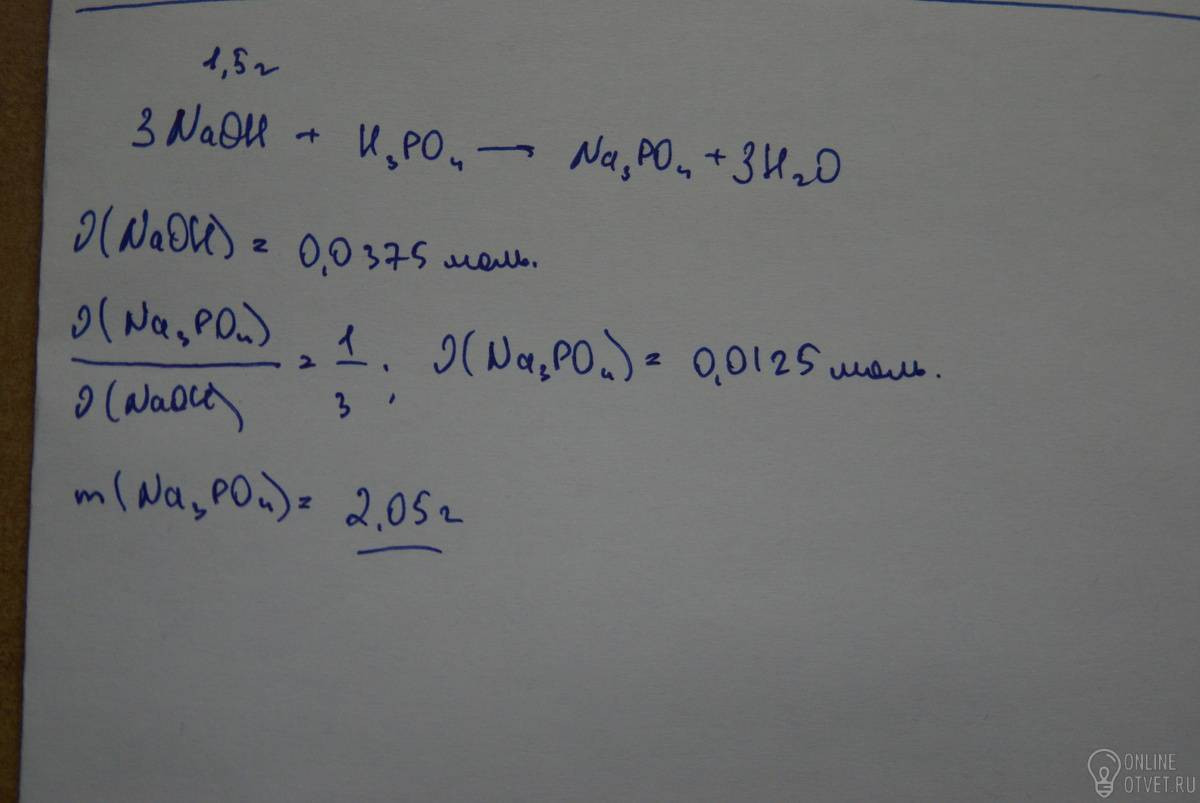 1,5 г
3 NaOH + H₃PO₄ → Na₃PO₄ + 3H₂O
ν(NaOH) = 0,0375 моль.
ν(Na₃PO₄)
ν(NaOH)
= 1/3 ; ν(Na₃PO₄) = 0,0125 моль.
m(Na₃PO₄) = 2,05 г
ONLINE
OTVET.RU